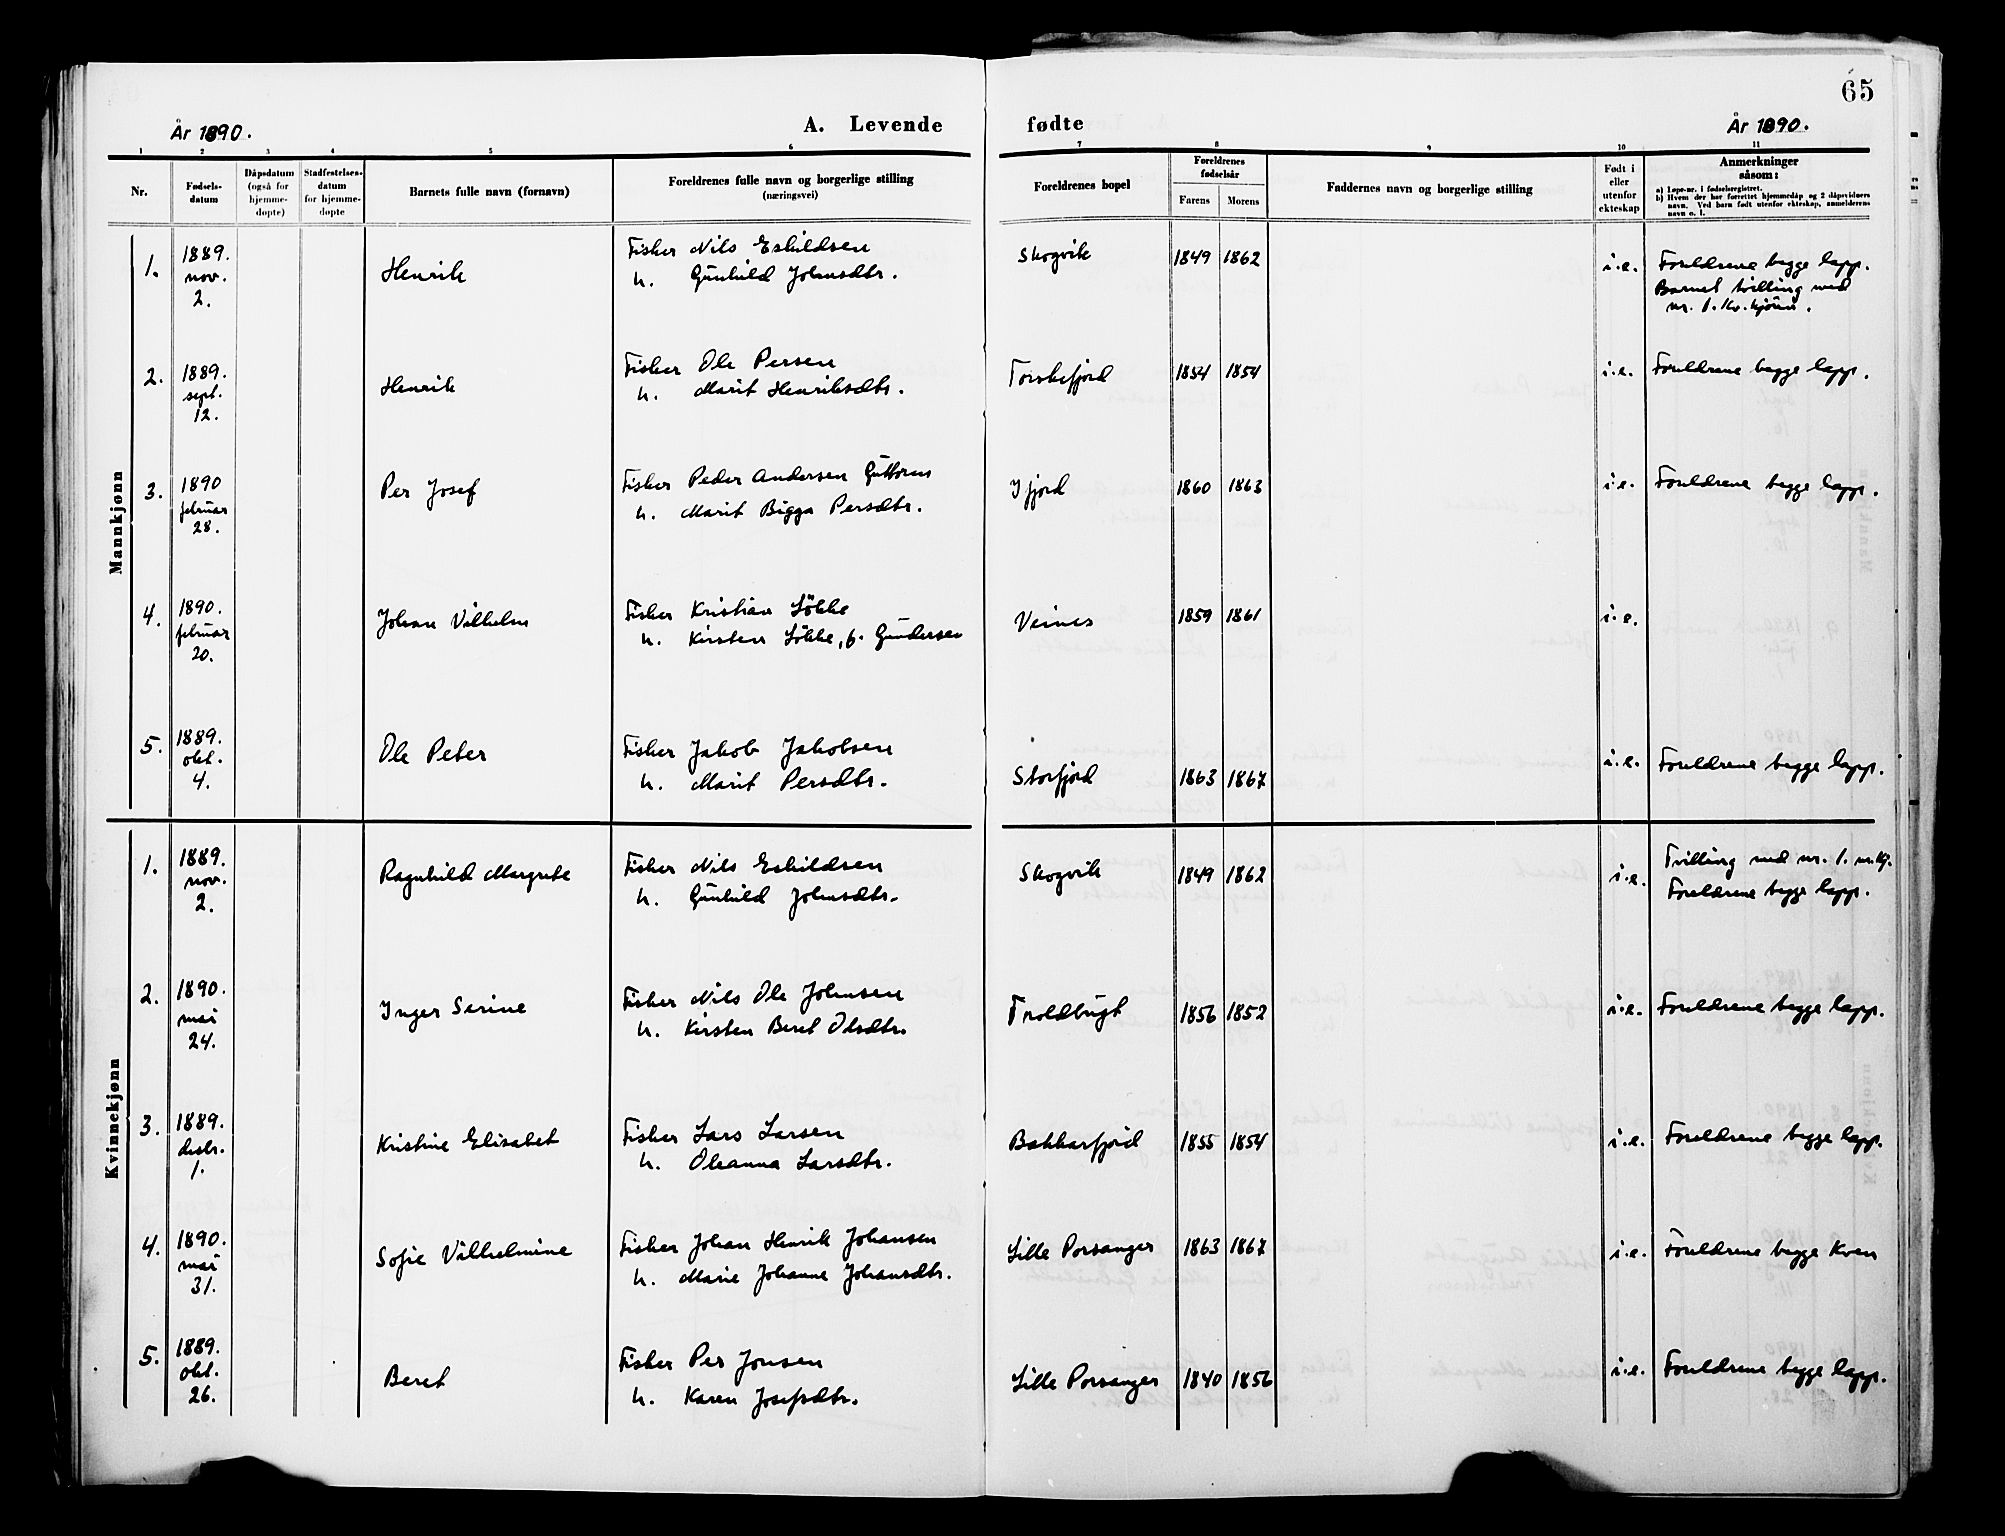 65
År 1890.
A. Levende
fødte
År 1890.
1 2 3 4 5 6 7 8 9 10 11
Nr.
Fødsels-
datum
Dåpsdatum
(også for
hjemme-
døpte)
Stadfestelses-
datum
for hjemme-
døpte
Barnets fulle navn (fornavn)
Foreldrenes fulle navn og borgerlige stilling
(næringsvei)
Foreldrenes bopel
Foreldrenes
fødselsår
Farens
Morens
Faddernes navn og borgerlige stilling
Født i
eller
utenfor
ekteskap
Anmerkninger
såsom:
a) Løpe-nr. i fødselsregistret.
b) Hvem der har forrettet hjemmedåp og 2 dåpsvidners
navn. Ved barn født utenfor ekteskap, anmelderens
navn o. l.
Mannkjønn
1.
1889.
nov.
2.
Henrik
Fisker Nils Eskildsen
h. Gunhild Johnsdtr.
Skogvik
1849 1862
i.e.
Foreldrene begge lapp.
Barnet tvilling med
nr. 1. kv. kjønn.
2.
1889.
sept.
12.
Henrik
Fisker Ole Persen
h. Marit Henriksdtr.
Torskefjord
1854 1854
i.e.
Foreldrene begge lapp.
3.
1890
februar
28.
Per Josef
Fisker Peder Andersen Guttorm
h. Marit Bigga Persdtr.
Ifjord
1860 1863
i.e.
Foreldrene begge lapp.
4.
1890.
februar
20.
Johan Vilhelm
Fisker Kristian Løkke
h. Kirsten Løkke, f. Gundersen
Veines
1859 1861
i.e.
5.
1889.
okt.
4.
Ole Peter
Fisker Jakob Jakobsen
h. Marit Persdtr.
Storfjord
1863 1867
i.e.
Foreldrene begge lapp.
Kvinnekjønn
1.
1889.
nov.
2.
Ragnhild Margrete
Fisker Nils Eskildsen
h. Gunhild Johnsdtr.
Skogvik
1849 1862
i.e.
Tvilling med nr. 1. m.kj.
Foreldrene begge lapp.
2.
1890.
mai
24.
Inger Serine
Fisker Nils Ole Johnsen
h. Kirsten Beret Olsdtr.
Troldbugt
1856 1852
i.e.
Foreldrene begge lapp.
3.
1889.
desbr.
1.
Kristine Elisabet
Fisker Lars Larsen
h. Oleanna Larsdtr.
Bakkarfjord
1855 1854
i.e.
Foreldrene begge lapp.
4.
1890.
mai
31.
Sofie Vilhelmine
Fisker Johan Henrik Johansen
h. Marie Johanne Johansdtr.
Lille Porsanger
1863 1867
i.e.
Foreldrene begge Kven
5.
1889.
okt.
26.
Beret
Fisker Per Jonsen
h. Karen Josefsdtr.
Lille Porsanger
1840 1856
i.e.
Foreldrene begge lapp.